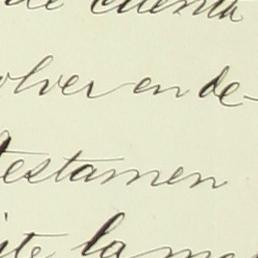 de cuenta
olver en de-
testamen
ite la me